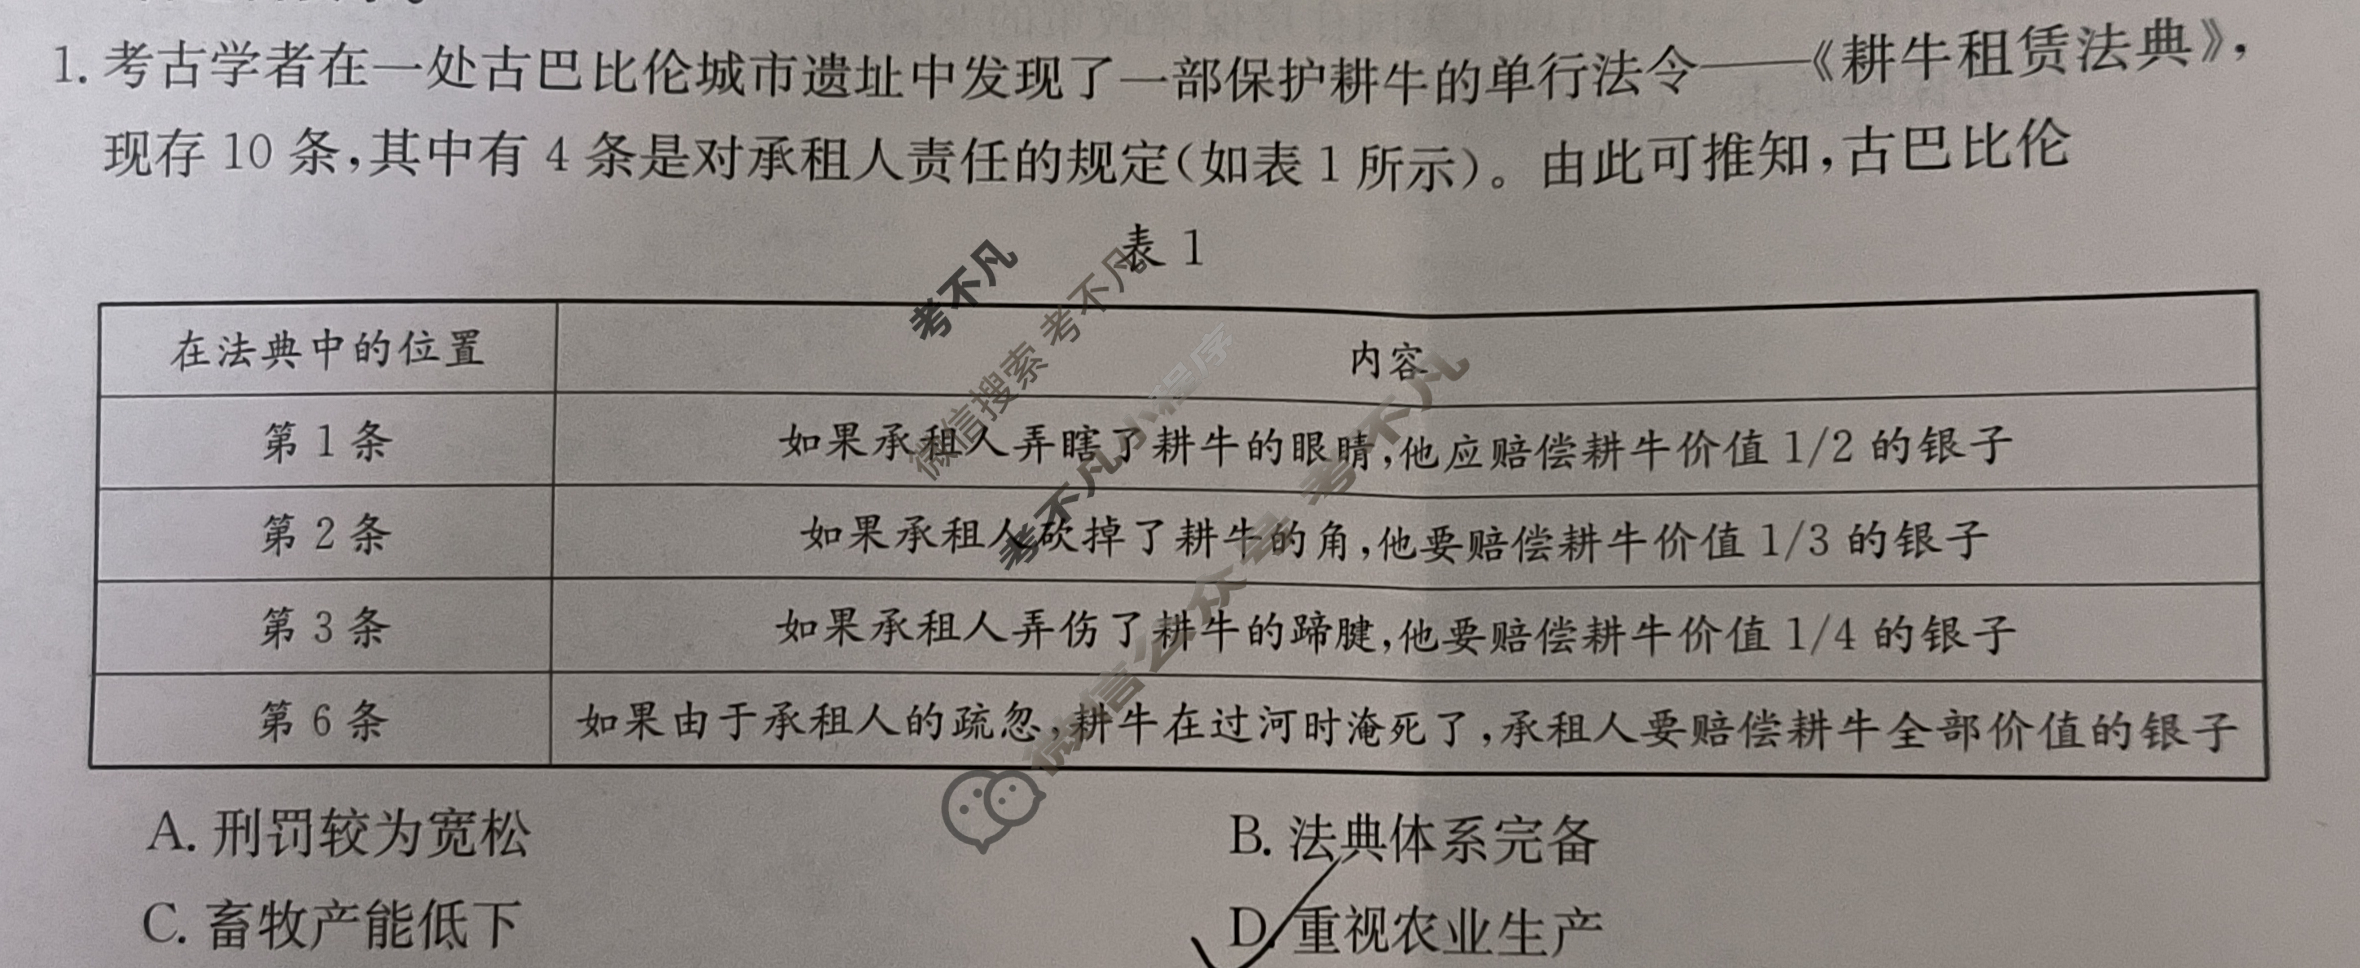 1. 考古学者在一处古巴比伦城市遗址中发现了一部保护耕牛的单行法令——《耕牛租赁法典》,
现存 10 条,其中有 4 条是对承租人责任的规定(如表 1 所示)。由此可推知,古巴比伦
表 1
在法典中的位置 内容
第 1 条 如果承租人弄瞎了耕牛的眼睛,他应赔偿耕牛价值 1/2 的银子
第 2 条 如果承租人砍掉了耕牛的角,他要赔偿耕牛价值 1/3 的银子
第 3 条 如果承租人弄伤了耕牛的蹄腱,他要赔偿耕牛价值 1/4 的银子
第 6 条 如果由于承租人的疏忽,耕牛在过河时淹死了,承租人要赔偿耕牛全部价值的银子
A. 刑罚较为宽松 B. 法典体系完备
C. 畜牧产能低下 D. 重视农业生产
考不凡
微信搜索 考不凡
考不凡小程序
微信公众号 考不凡